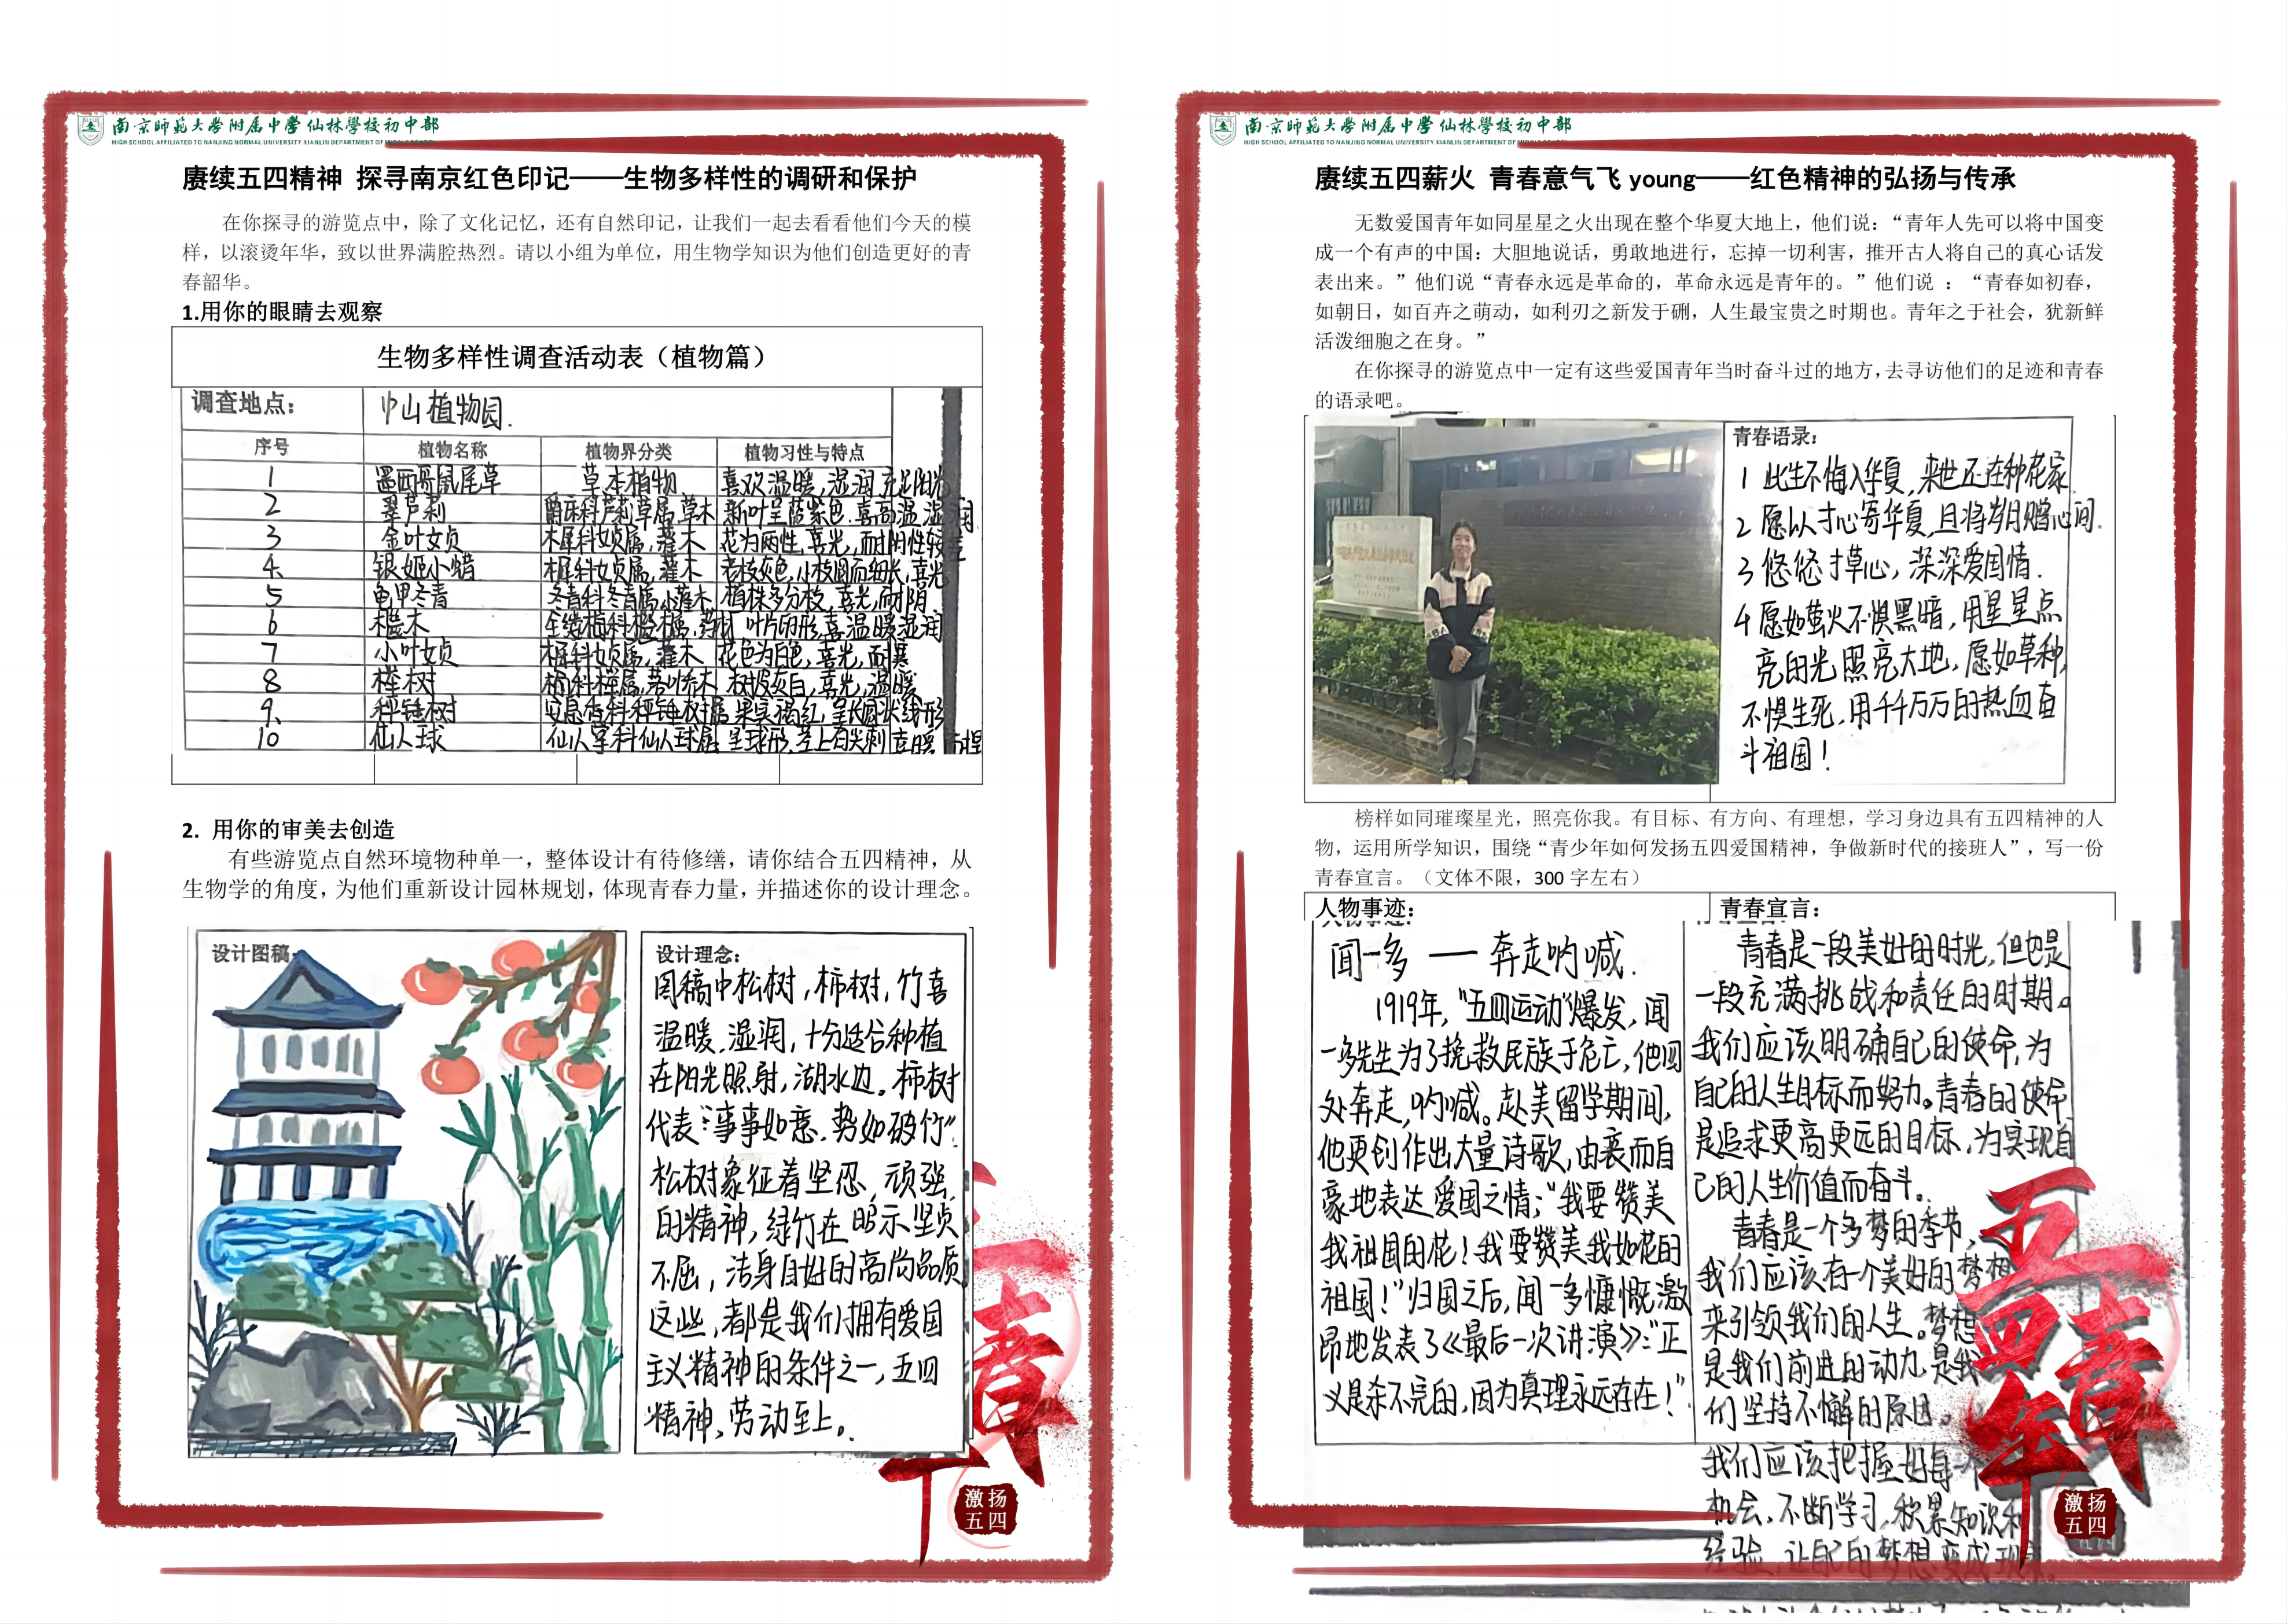 南京师范大学附属中学仙林学校初中部
HIGH SCHOOL AFFILIATED TO NANJING NORMAL UNIVERSITY XIANLIN DEPARTMENT OF
赓续五四精神 探寻南京红色印记——生物多样性的调研和保护
在你探寻的游览点中，除了文化记忆，还有自然印记，让我们一起去看看他们今天的模
样，以滚烫年华，致以世界满腔热烈。请以小组为单位，用生物学知识为他们创造更好的青
春韶华。
1.用你的眼睛去观察
生物多样性调查活动表（植物篇）
调查地点： 中山植物园.
序号 植物名称 植物界分类 植物习性与特点
1 墨西哥鼠尾草 草本植物 喜欢温暖,湿润充足阳光
2 翠芦莉 爵床科芦莉草属,草木 新叶呈蓝紫色.喜高温湿润
3 金叶女贞 木犀科女贞属,灌木 花为两性,喜光,而耐阴性较差
4 银姬小蜡 木犀科女贞属,灌木 老枝灰色,小枝圆而细长,喜光
5 龟甲冬青 冬青科冬青属,小灌木 植株多分枝,喜光,耐阴
6 檵木 金缕梅科檵木属, 叶片卵形,喜温暖湿润
7 小叶女贞 木犀科女贞属,灌木 花色为白色,喜光,耐寒
8 榉树 榆科榉属,落叶乔木 树皮灰白,喜光,温暖
9 秤锤树 安息香科秤锤树属 果实褐红,
10 仙人球 仙人掌科仙人球属 呈球形,茎上有尖刺
2. 用你的审美去创造
有些游览点自然环境物种单一，整体设计有待修缮，请你结合五四精神，从
生物学的角度，为他们重新设计园林规划，体现青春力量，并描述你的设计理念。
设计图稿：
设计理念：
图稿中松树,柿树,竹喜
温暖.湿润,十分适合种植
在阳光照射,湖水边。柿树
代表:“事事如意.势如破竹”.
松树象征着坚忍,顽强
的精神,绿竹在昭示坚贞
不屈,洁身自好的高尚品质
这些,都是我们拥有爱国
主义精神的条件之一,五四
精神,劳动至上。
激扬
五四
南京师范大学附属中学仙林学校初中部
HIGH SCHOOL AFFILIATED TO NANJING NORMAL UNIVERSITY XIANLIN DEPARTMENT OF
赓续五四薪火 青春意气飞 young——红色精神的弘扬与传承
无数爱国青年如同星星之火出现在整个华夏大地上，他们说：“青年人先可以将中国变
成一个有声的中国：大胆地说话，勇敢地进行，忘掉一切利害，推开古人将自己的真心话发
表出来。”他们说“青春永远是革命的，革命永远是青年的。”他们说 ：“青春如初春，
如朝日，如百卉之萌动，如利刃之新发于硎，人生最宝贵之时期也。青年之于社会，犹新鲜
活泼细胞之在身。”
在你探寻的游览点中一定有这些爱国青年当时奋斗过的地方，去寻访他们的足迹和青春
的语录吧。
青春语录：
1 此生不悔入华夏,来世还在种花家.
2 愿以寸心寄华夏,且将岁月赠山间.
3 悠悠寸草心,深深爱国情.
4 愿如萤火不惧黑暗,用星星点
亮的光照亮大地,愿如草种,
不惧生死,用千千万万的热血奋
斗祖国！
榜样如同璀璨星光，照亮你我。有目标、有方向、有理想，学习身边具有五四精神的人
物，运用所学知识，围绕“青少年如何发扬五四爱国精神，争做新时代的接班人”，写一份
青春宣言。（文体不限，300 字左右）
人物事迹：
闻一多 — 奔走呐喊.
1919年,“五四运动”爆发,闻
一多先生为了挽救民族于危亡,他四
处奔走,呐喊。赴美留学期间,
他更创作出大量诗歌,由衷而自
豪地表达爱国之情;“我要赞美
我祖国的花！我要赞美我如花的
祖国！”归国之后,闻一多慷慨激
昂地发表了《最后一次讲演》:“正
义是杀不完的,因为真理永远存在！”
青春宣言：
青春是一段美好的时光,但也是
一段充满挑战和责任的时期。
我们应该明确自己的使命,为
自己的人生目标而努力。青春的使命
是追求更高更远的目标,为实现自
己的人生价值而奋斗。
青春是一个多梦的季节,
我们应该有一个美好的梦想
来引领我们的人生。梦想
是我们前进的动力,是我
们坚持不懈的原因。
我们应该把握好每一个
机会,不断学习,积累知识和
经验,让自己的梦想变成现
五四青年
激扬
五四